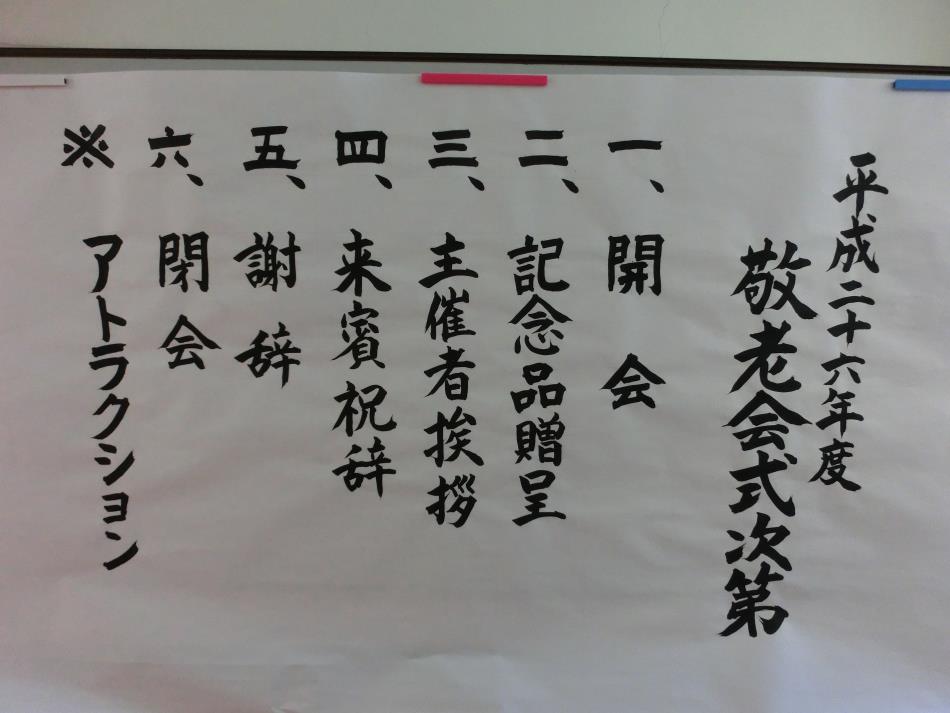 平成二十六年度
敬老会式次第
一、開会
二、記念品贈呈
三、主催者挨拶
四、来賓祝辞
五、謝辞
六、閉会
※アトラクション